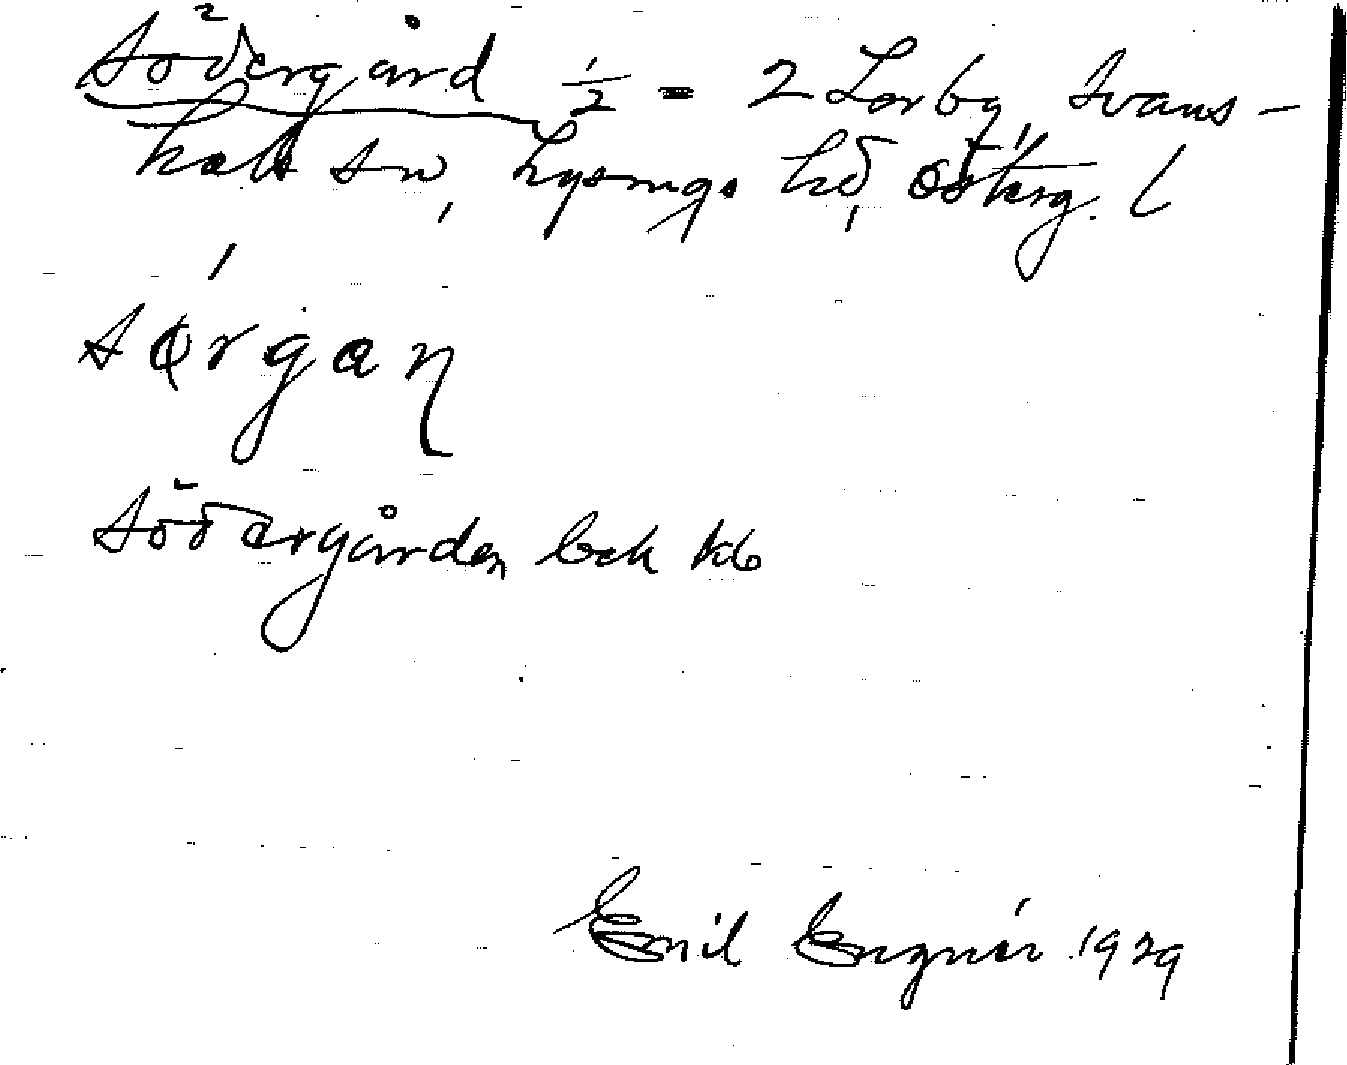 Södergård 1/2 = 2 Lorby, Svans-
hals sn, Lysings hd, Österg. l
sǿrgaɳ
Södergården bek kb
Emil Engnér 1929